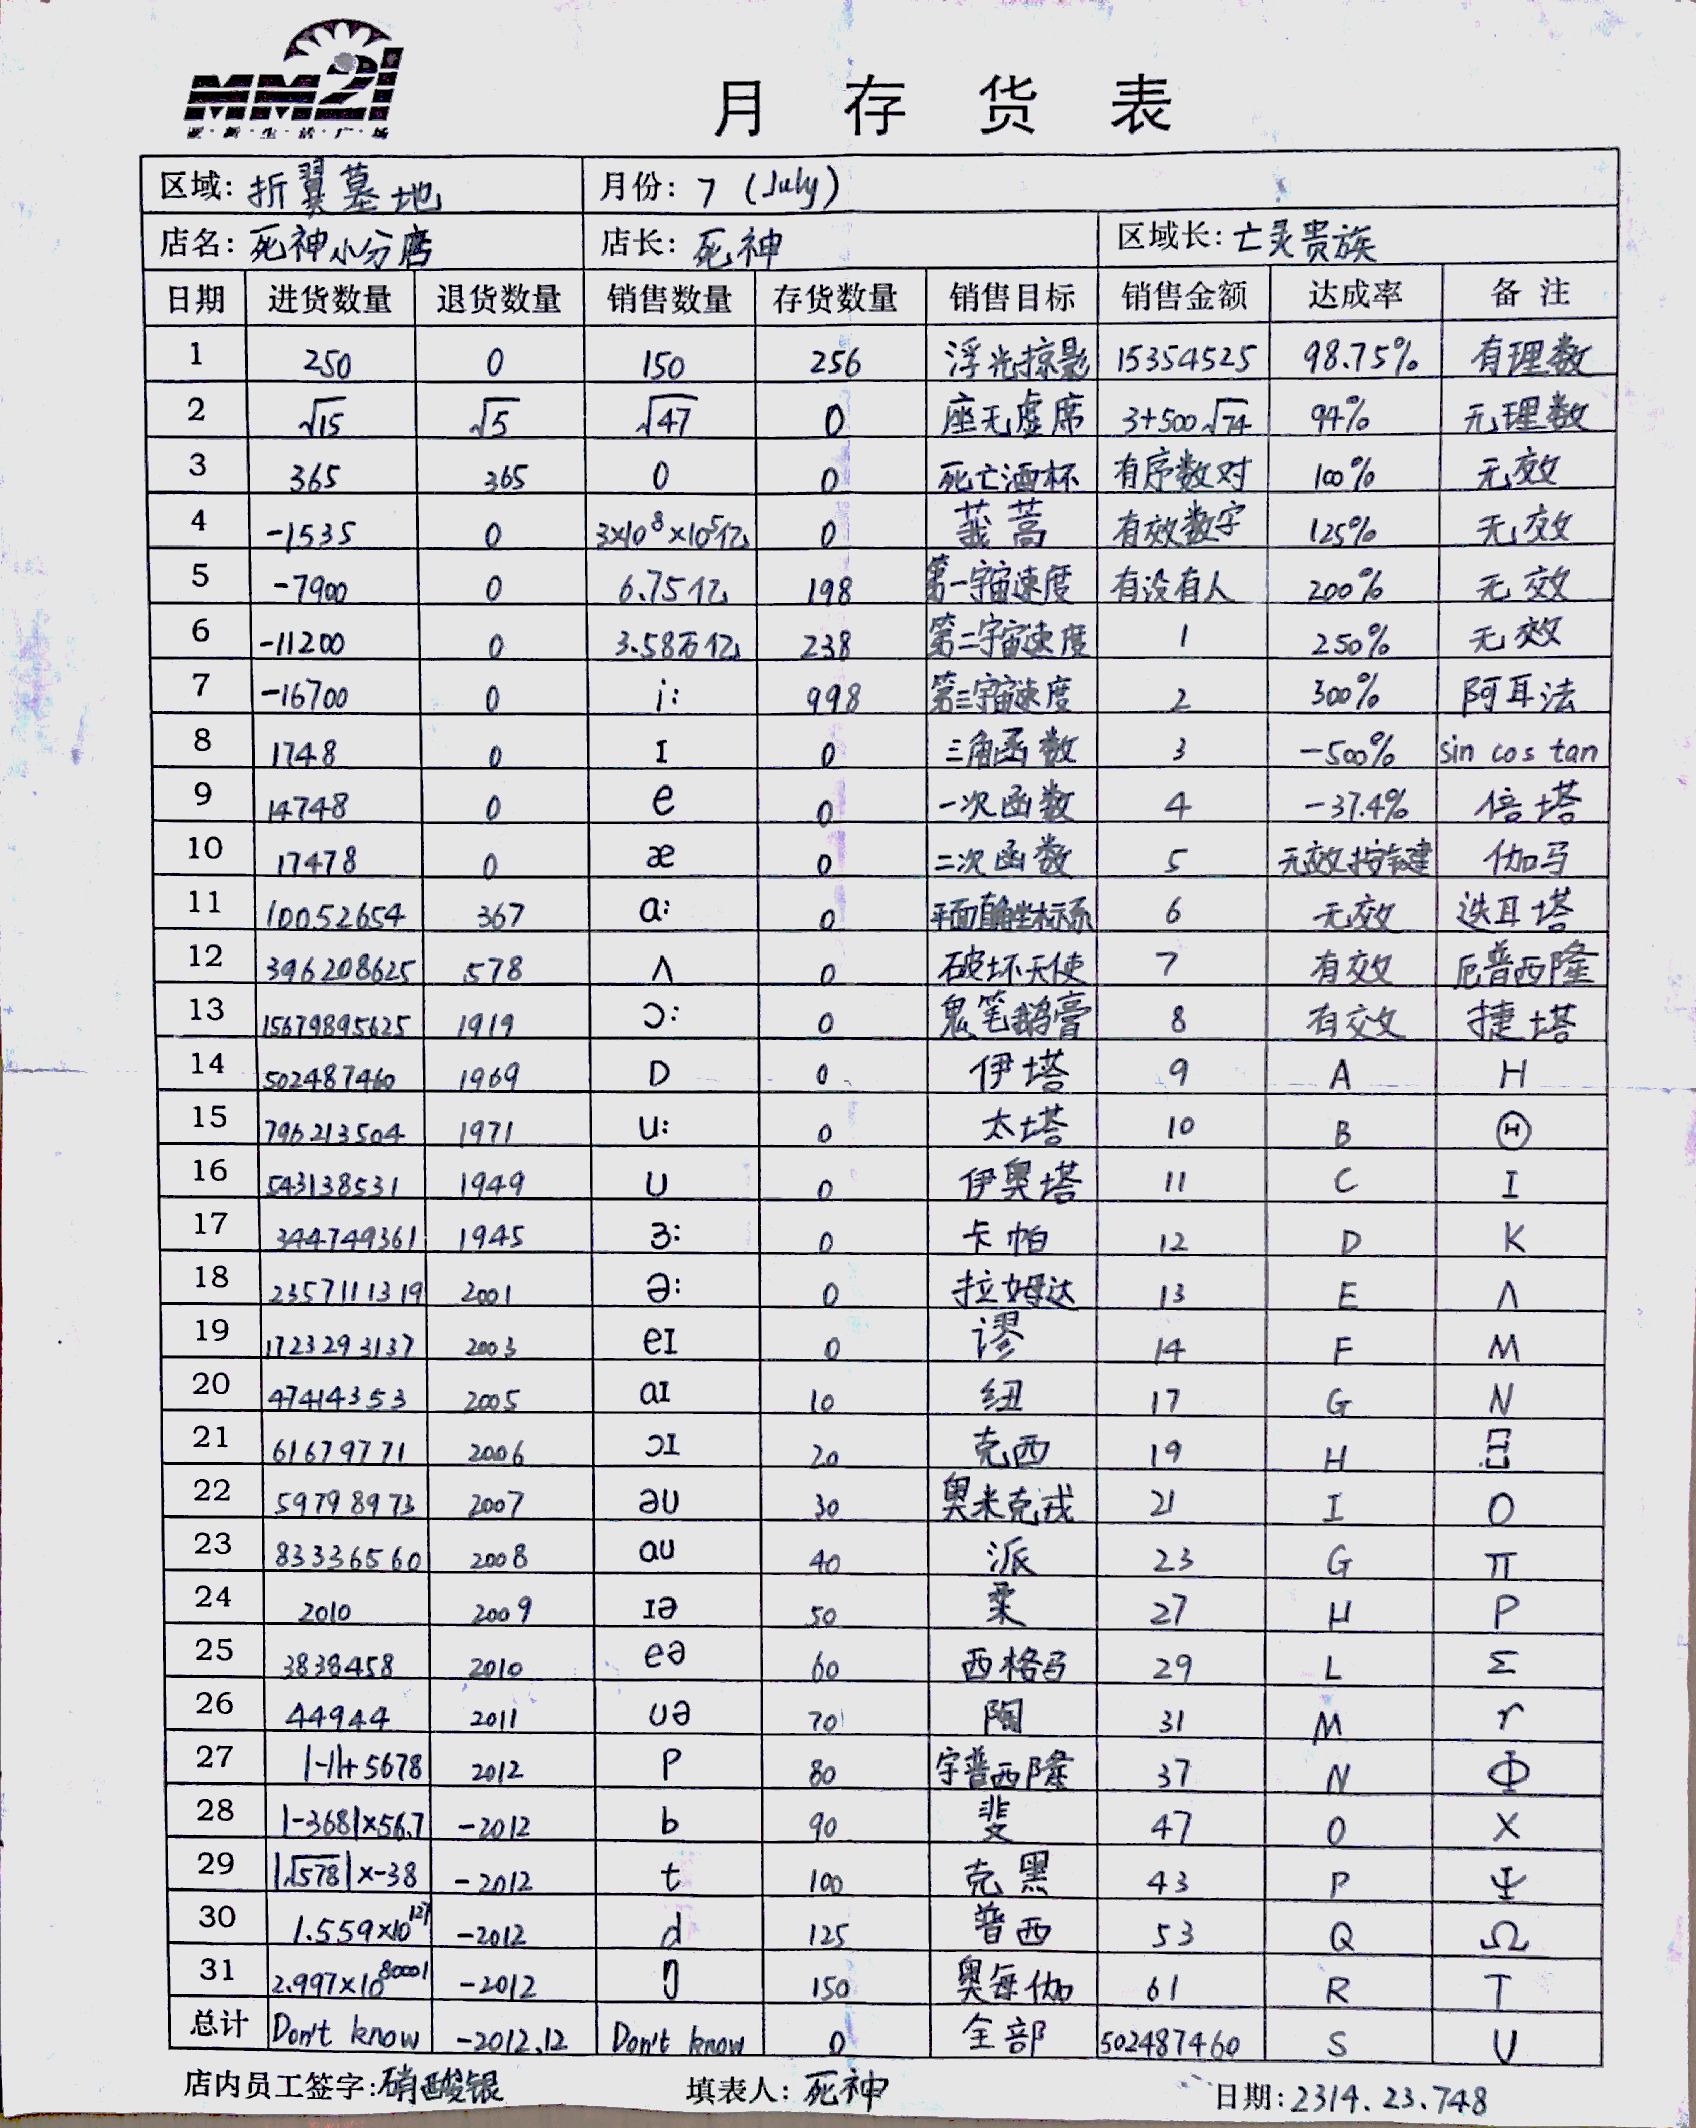 MM21
亚·新·生·活·广·场
月存货表
区域: 折翼墓地 月份: 7 (July)
店名: 死神小分店 店长: 死神 区域长: 亡灵贵族
日期 进货数量 退货数量 销售数量 存货数量 销售目标 销售金额 达成率 备注
1 250 0 150 256 浮光掠影 15354525 98.75% 有理数
2 √15 √5 √47 0 座无虚席 3+500√74 94% 无理数
3 365 365 0 0 死亡酒杯 有序数对 100% 无效
4 -1535 0 3×10⁸×10⁵亿 0 莪蒿 有效数字 125% 无效
5 -7900 0 6.75亿 198 第一宇宙速度 有没有人 200% 无效
6 -11200 0 3.58万亿 238 第二宇宙速度 1 250% 无效
7 -16700 0 i: 998 第三宇宙速度 2 300% 阿耳法
8 1748 0 I 0 三角函数 3 -500% sin cos tan
9 14748 0 e 0 一次函数 4 -37.4% 倍塔
10 17478 0 æ 0 二次函数 5 无效按键 伽马
11 10052654 367 ɑ: 0 平面直角坐标系 6 无效 迭耳塔
12 396208625 578 Λ 0 破坏天使 7 有效 厄普西隆
13 15679895625 1919 ɔ: 0 鬼笔鹅膏 8 有效 捷塔
14 502487460 1969 D 0 伊塔 9 A H
15 796213504 1971 u: 0 太塔 10 B Θ
16 543138531 1949 U 0 伊奥塔 11 C I
17 344749361 1945 3: 0 卡帕 12 D K
18 2357111319 2001 ə: 0 拉姆达 13 E Λ
19 1723293137 2003 eI 0 谬 14 F M
20 47414353 2005 aI 10 纽 17 G N
21 61679771 2006 ɔI 20 克西 19 H Ξ
22 59798973 2007 əU 30 奥米克戎 21 I O
23 83336560 2008 aU 40 派 23 G π
24 2010 2009 Iə 50 柔 27 H P
25 3838458 2010 eə 60 西格马 29 L Σ
26 44944 2011 Uə 70 陶 31 M r
27 |-1|+5678 2012 P 80 宇普西隆 37 N Φ
28 |-368|×56.7 -2012 b 90 斐 47 O X
29 |√578|×-38 -2012 t 100 克黑 43 P Ψ
30 1.559×10¹²⁷ -2012 d 125 普西 53 Q Ω
31 2.997×10⁸⁰⁰⁰¹ -2012 150 奥每伽 61 R T
总计 Don't know -2012.12 Don't know 0 全部 502487460 S U
店内员工签字: 硝酸银 填表人: 死神 日期: 2314.23.748